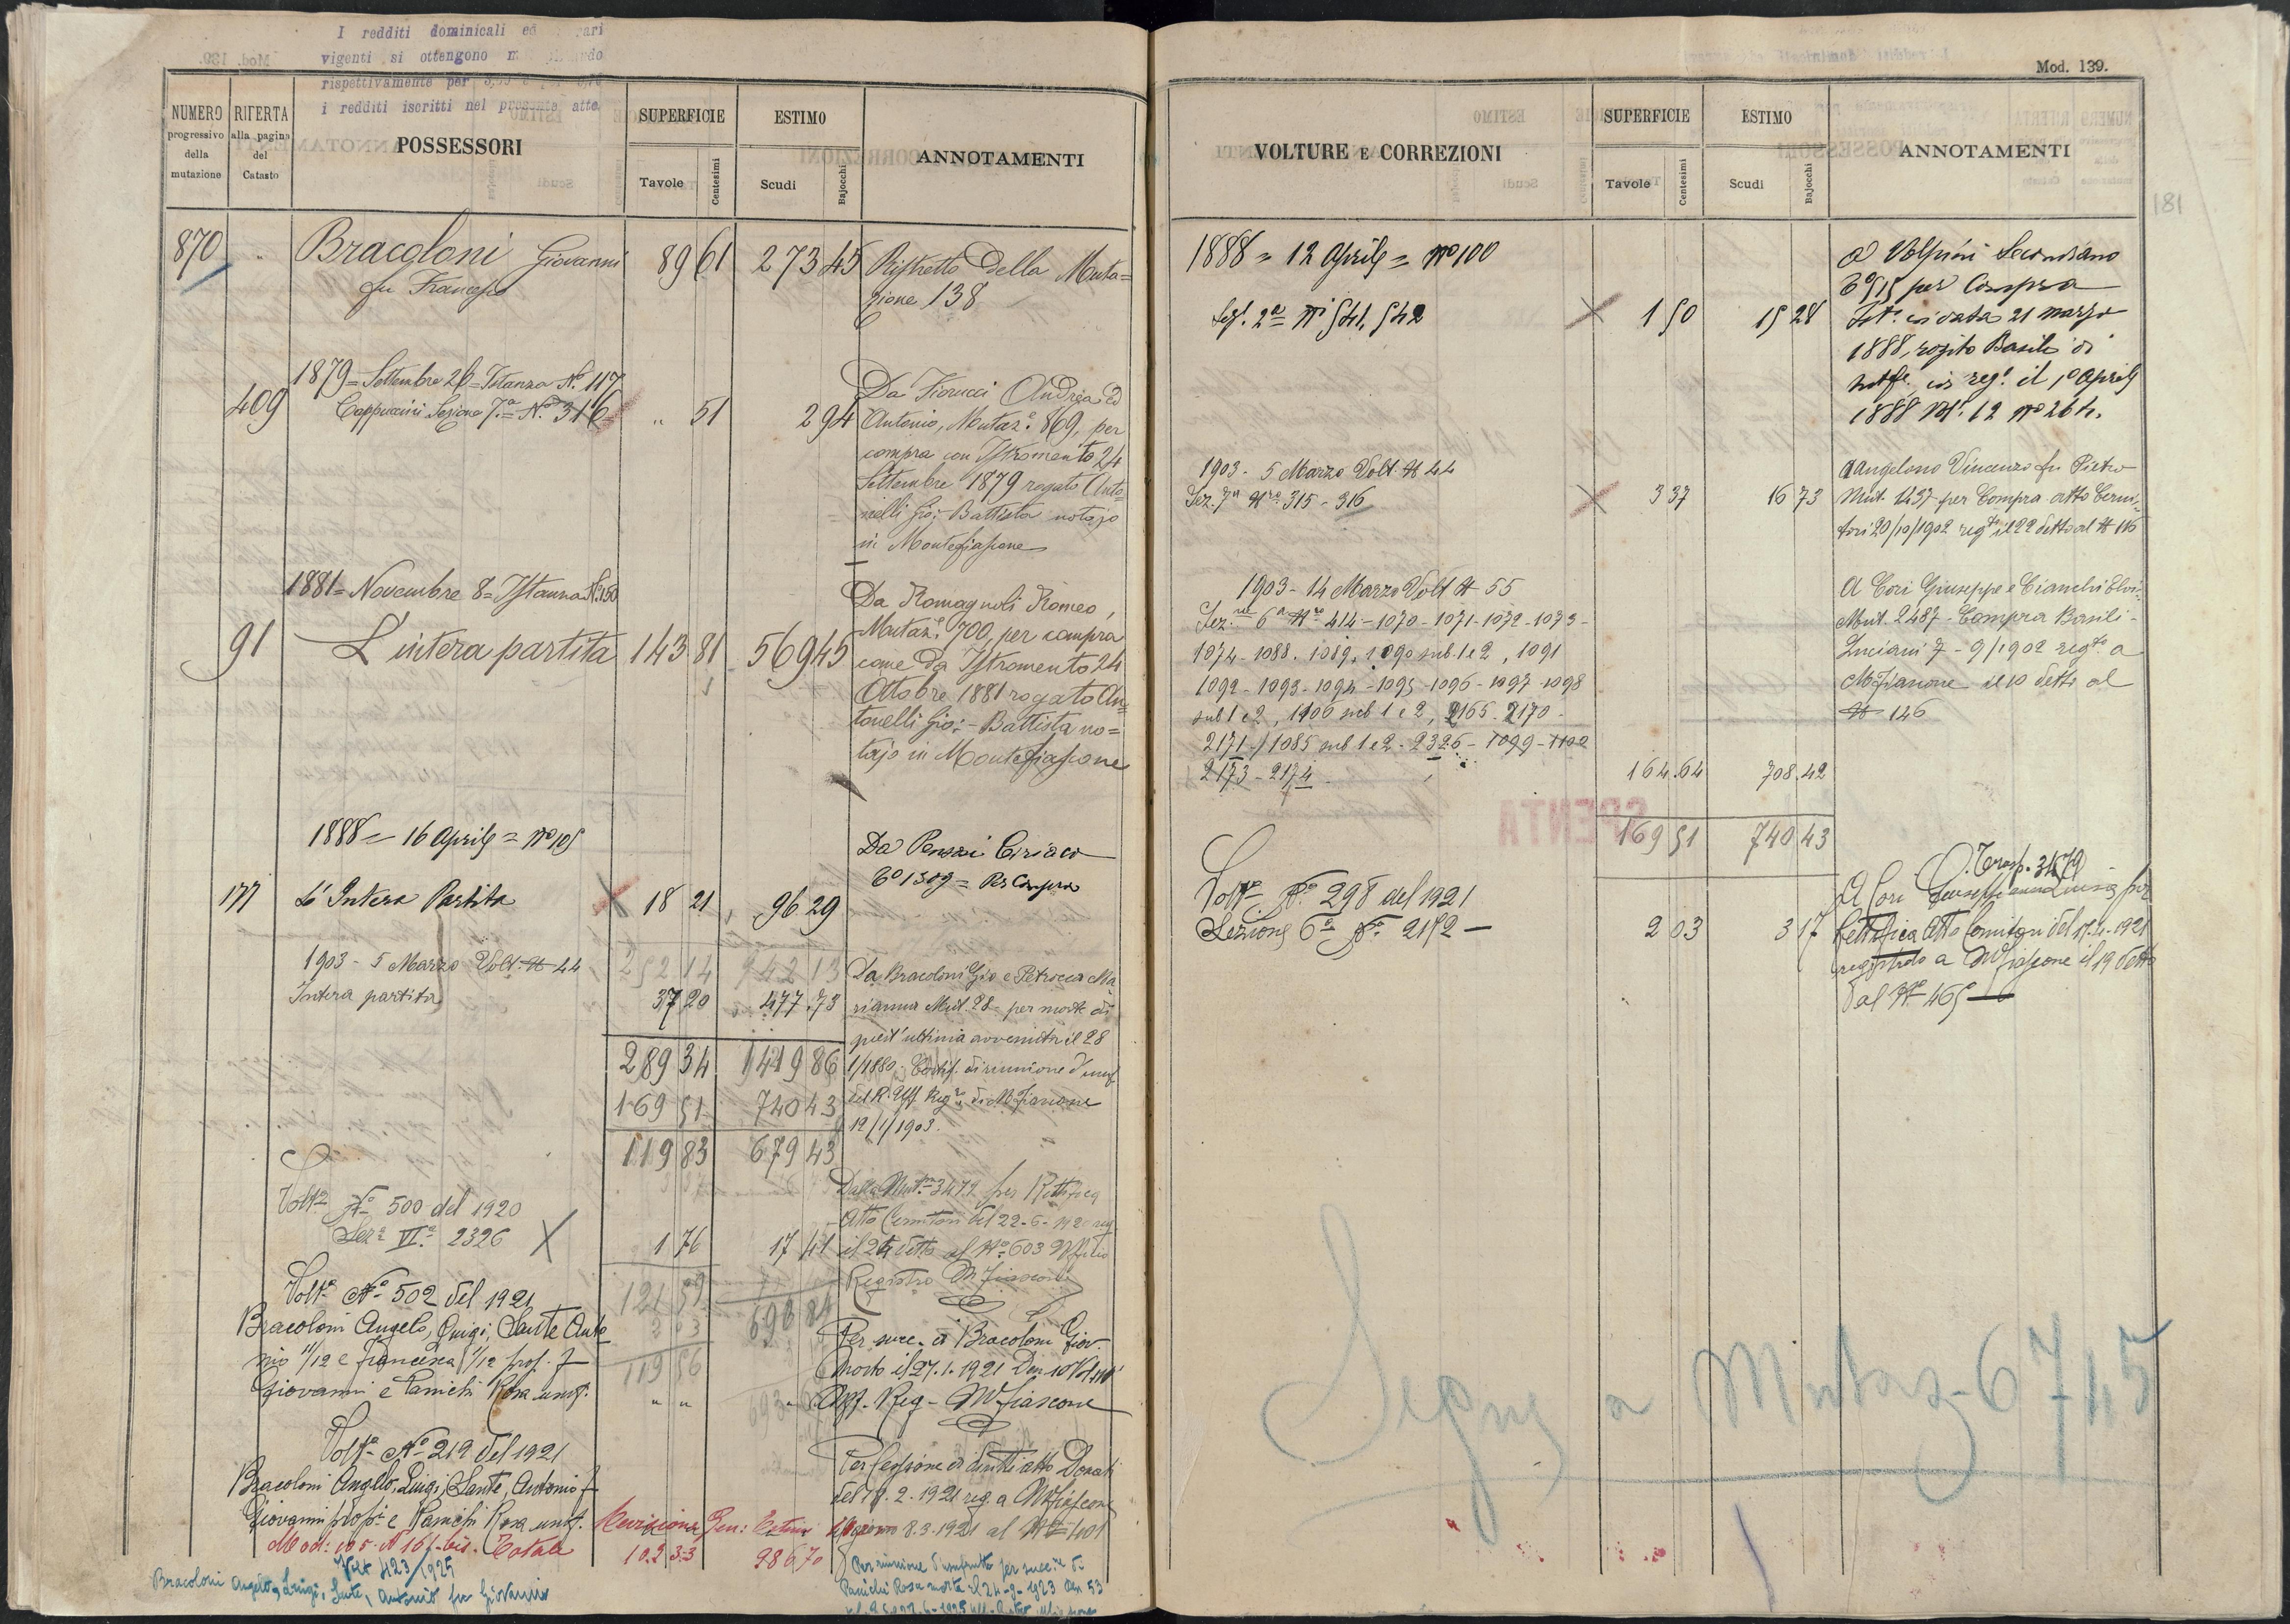 I redditi dominicali ed
vigenti si ottengono
rispettivamente per
i redditi iscritti nel presente atto.
NUMERO progressivo della mutazione
RIFERTA alla pagina del Catasto
POSSESSORI
SUPERFICIE
Tavole Centesimi
ESTIMO
Scudi Bajocchi
ANNOTAMENTI
870 " Bracoloni Giovanni 89 61 273 45 Ristretto della Muta=
fu Francesco zione 138
1879 = Settembre 26 = Istanza N.º 117 Da Fiorucci Andrea ed
409 Cappuccini Sezione 7.ª = N.º 316 " 51 2 94 Antonio, Mutaz.e 869, per
compra con Istromento 24
Settembre 1879 rogato Anto=
nelli Gio: Battista notajo
in Montefiascone
1881 = Novembre 8 = Istanza N.º 150 Da Romagnoli Romeo,
91 L'intera partita 143 81 569 45 Mutaz.e 700, per compra
come da Istromento 24
Ottobre 1881 rogato An=
tonelli Gio: - Battista no=
tajo in Montefiascone
1888 = 16 Aprile = Nº 105 Da Pensai Ciriaco
177 L'Intera Partita 18 21 96 29 Cº 1309 = Per Compra
1903 - 5 Marzo Volt. N 44 252 14 942 13 Da Bracoloni Gio e Petrocca Ma
Intera partita 37 20 477.73 rianna Mut. 28 - per morte di
quest'ultima avvenuta il 28
289 34 1419 86 1/1880. Certif. di riunione d'usuf.
169 51 740 43 del R. Uff. Reg.º di M.Fiascone
12/1/1903.
119 83 679 43
Volt.ª Nº 500 del 1920 Dalla Mut.ne 3472 per Rettifica
Sez.e VI.ª 2326 X 1 76 17 41 Atto Cernitori del 22-6-1920 reg
il 24 detto al Nº 603 Ufficio
Registro M.fiascone
Volt.ª Nº 502 del 1921 121 59 696 84
Bracoloni Angelo, Luigi, Sante Anto 2 03
nio 11/12 e Francesca 1/12 prop. f 119 56
Giovanni e Panichi Rosa usuf. " " "
Per succ. di Bracoloni Giov.
morto il 27.1.1921 Den 10 Vol 110
Uff. Reg - M.fiascone
Volt.ª Nº 219 del 1921
Bracoloni Angelo, Luigi, Sante, Antonio f
Giovanni prop.i e Panichi Rosa usuf.
Per Cessione di diritti atto Donati
del 18.2.1921 reg. a M.fiascone
il giorno 8.3.1921 al Nº 401
Revisione Gen: Estimi
Totale 102 33 986 70
Volt 423/1925
Bracoloni Angelo, Luigi, Sante, Antonio fu Giovanni
Per riunione d'usufrutto per succ.ne di
Panichi Rosa morta il 24-9-1923 Den 53
Mod. 139.
VOLTURE E CORREZIONI
SUPERFICIE
Tavole Centesimi
ESTIMO
Scudi Bajocchi
ANNOTAMENTI
181
1888 = 12 Aprile = Nº 100 A Volpini Secondiano
Cº 515 per Compra
Sez. 2ª Nⁱ 541, 542 1 50 15 28 Ist.º in data 21 marzo
1888, rogito Basili di
in reg.º il 1º Aprile
1888 Vol. 12 Nº 264.
1903 - 5 Marzo Volt. N 44 A Angelono Vincenzo fu Pietro
Sez. 7ª Nro. 315 - 316 3 37 16 73 Mut. 1437 per Compra atto Cerni-
tori 20/10/1902 reg.to il 22 detto al N 116
1903 - 14 Marzo Volt N 55 A Cori Giuseppe e Cianchi Elvi-
Sez.ne 6ª Nro 414 - 1070 - 1071 - 1072 - 1073 - Mut. 2487 - Compra Basili -
1074 - 1088 - 1089, 1090 sub. 1 e 2, 1091 Luciani 7 - 9/1902 reg.to a
1092 - 1093 - 1094 - 1095 - 1096 - 1097 - 1098 M.Fiascone il 10 detto al
sub 1 e 2, 1106 sub 1 e 2, 2165 - 2170 - N 146
2171 - 1085 sub 1 e 2 - 2326 - 1099 - 1100
2173 - 2174 164.64 708.42
SPENTA
169 51 740 43
Volt.ª Nº 298 del 1921 Trasp. 3479
Sezione 6ª Nº 2172 - 2 03 3 17 A Cori Giuseppe per
Rettifica Atto Cernitori del 17-4-1921
registrato a M.fiascone il 19 detto
al Nº 465
Segue a Mutaz - 6745